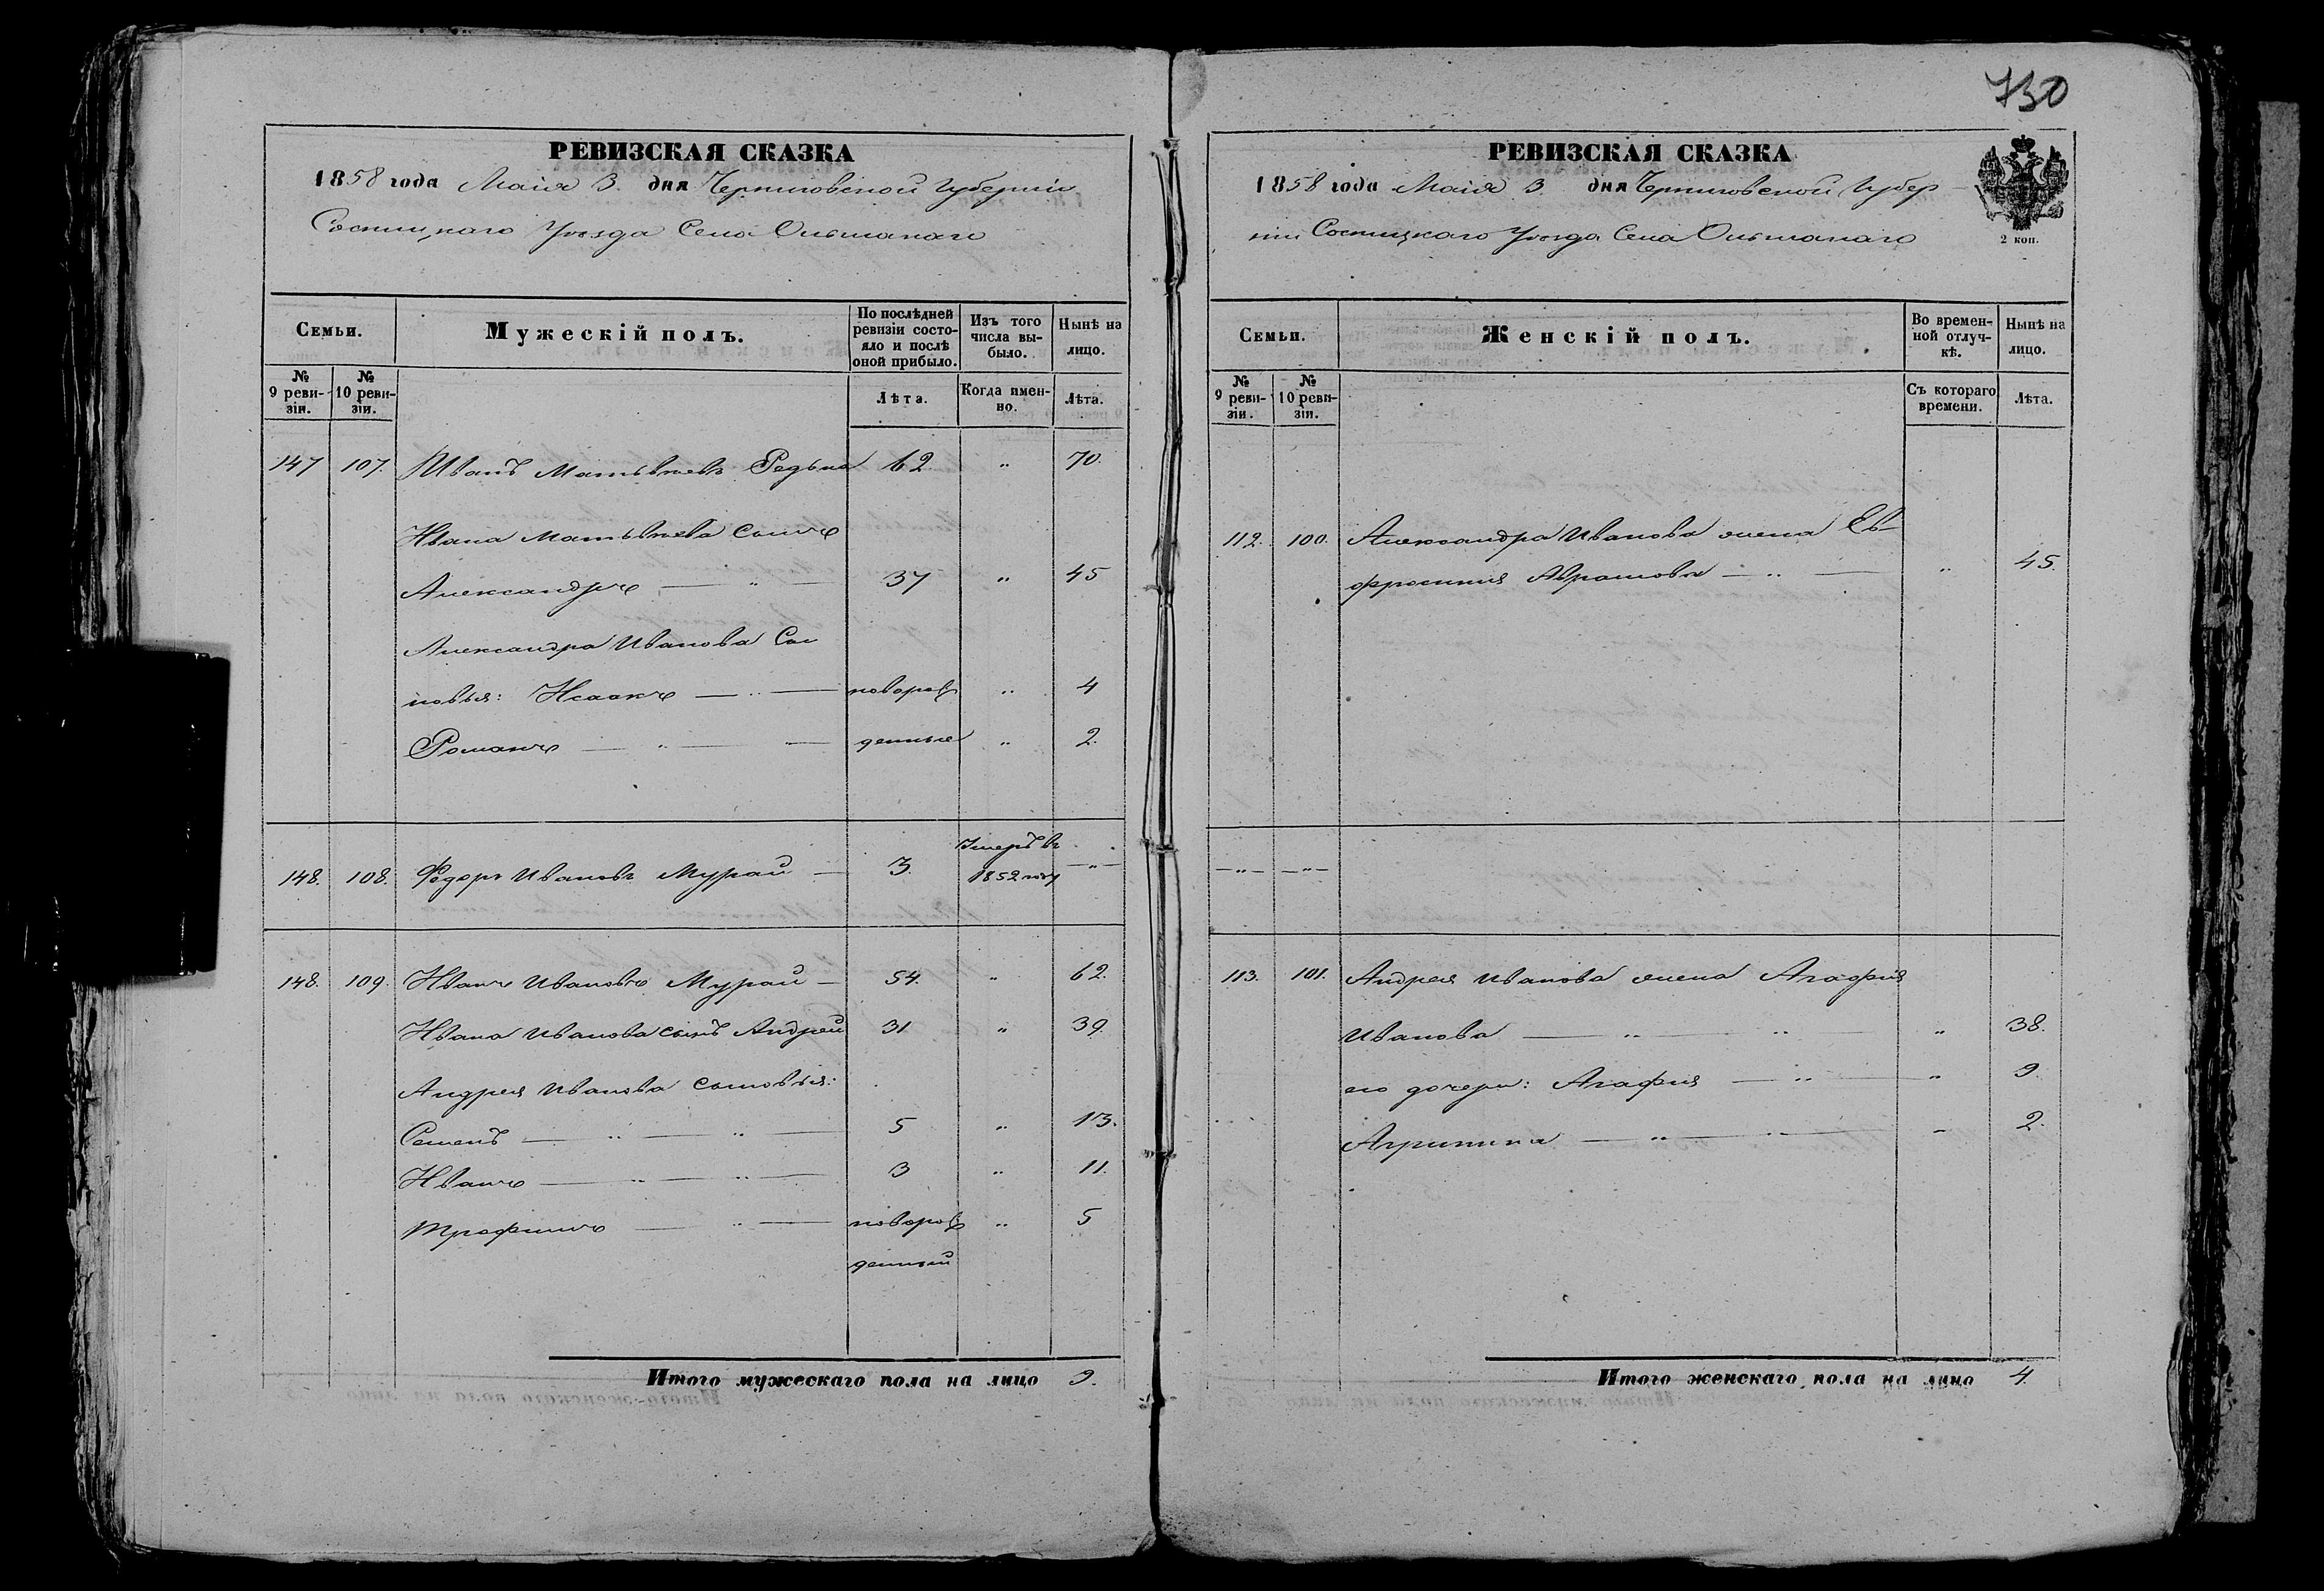 730
РЕВИЗСКАЯ СКАЗКА
1858 года Маія 3 дня Черниговской Губерніи
Сосницкаго Уѣзда Села Ольшанаго
Семьи.
Мужескій полъ.
По послѣдней ревизіи состояло и послѣ оной прибыло.
Изъ того числа выбыло.
Нынѣ на лицо.
№ 9 ревизіи.
№ 10 ревизіи.
Лѣта.
Когда именно.
Лѣта.
147 107. Иванъ Матвѣевъ Редька 62 " 70.
Ивана Матвѣева сынъ
Александръ — " — 37 " 45
Александра Иванова Сы
новья: Исаакъ — " — новорож " 4
Романъ — " — денные " 2.
148. 108. Федоръ Ивановъ Мурай — 3. Умеръ въ 1852 году — " —
148. 109. Иванъ Ивановъ Мурай — 54. " 62.
Ивана Иванова сынъ Андрей 31 " 39.
Андрея Иванова сыновья:
Семенъ — " — " — 5 " 13.
Иванъ — " — " — 3 " 11.
Трофимъ — " — новорож " 5
денный
Итого мужескаго пола на лицо 9.
РЕВИЗСКАЯ СКАЗКА
1858 года Маія 3 дня Черниговской Губер
ніи Сосницкаго Уѣзда Села Ольшанаго
2 коп.
Семьи.
Женскій полъ.
Во временной отлучкѣ.
Нынѣ на лицо.
№ 9 ревизіи.
№ 10 ревизіи.
Съ котораго времени.
Лѣта.
112. 100. Александра Иванова жена Ев
фросинія Абрамова — " — " 45.
— " — — " —
113. 101. Андрея Иванова жена Агафия
Иванова — " — " — " 38.
его дочери: Агафия — " — " 9.
Агрипина — " — " — " 2.
Итого женскаго пола на лицо 4.